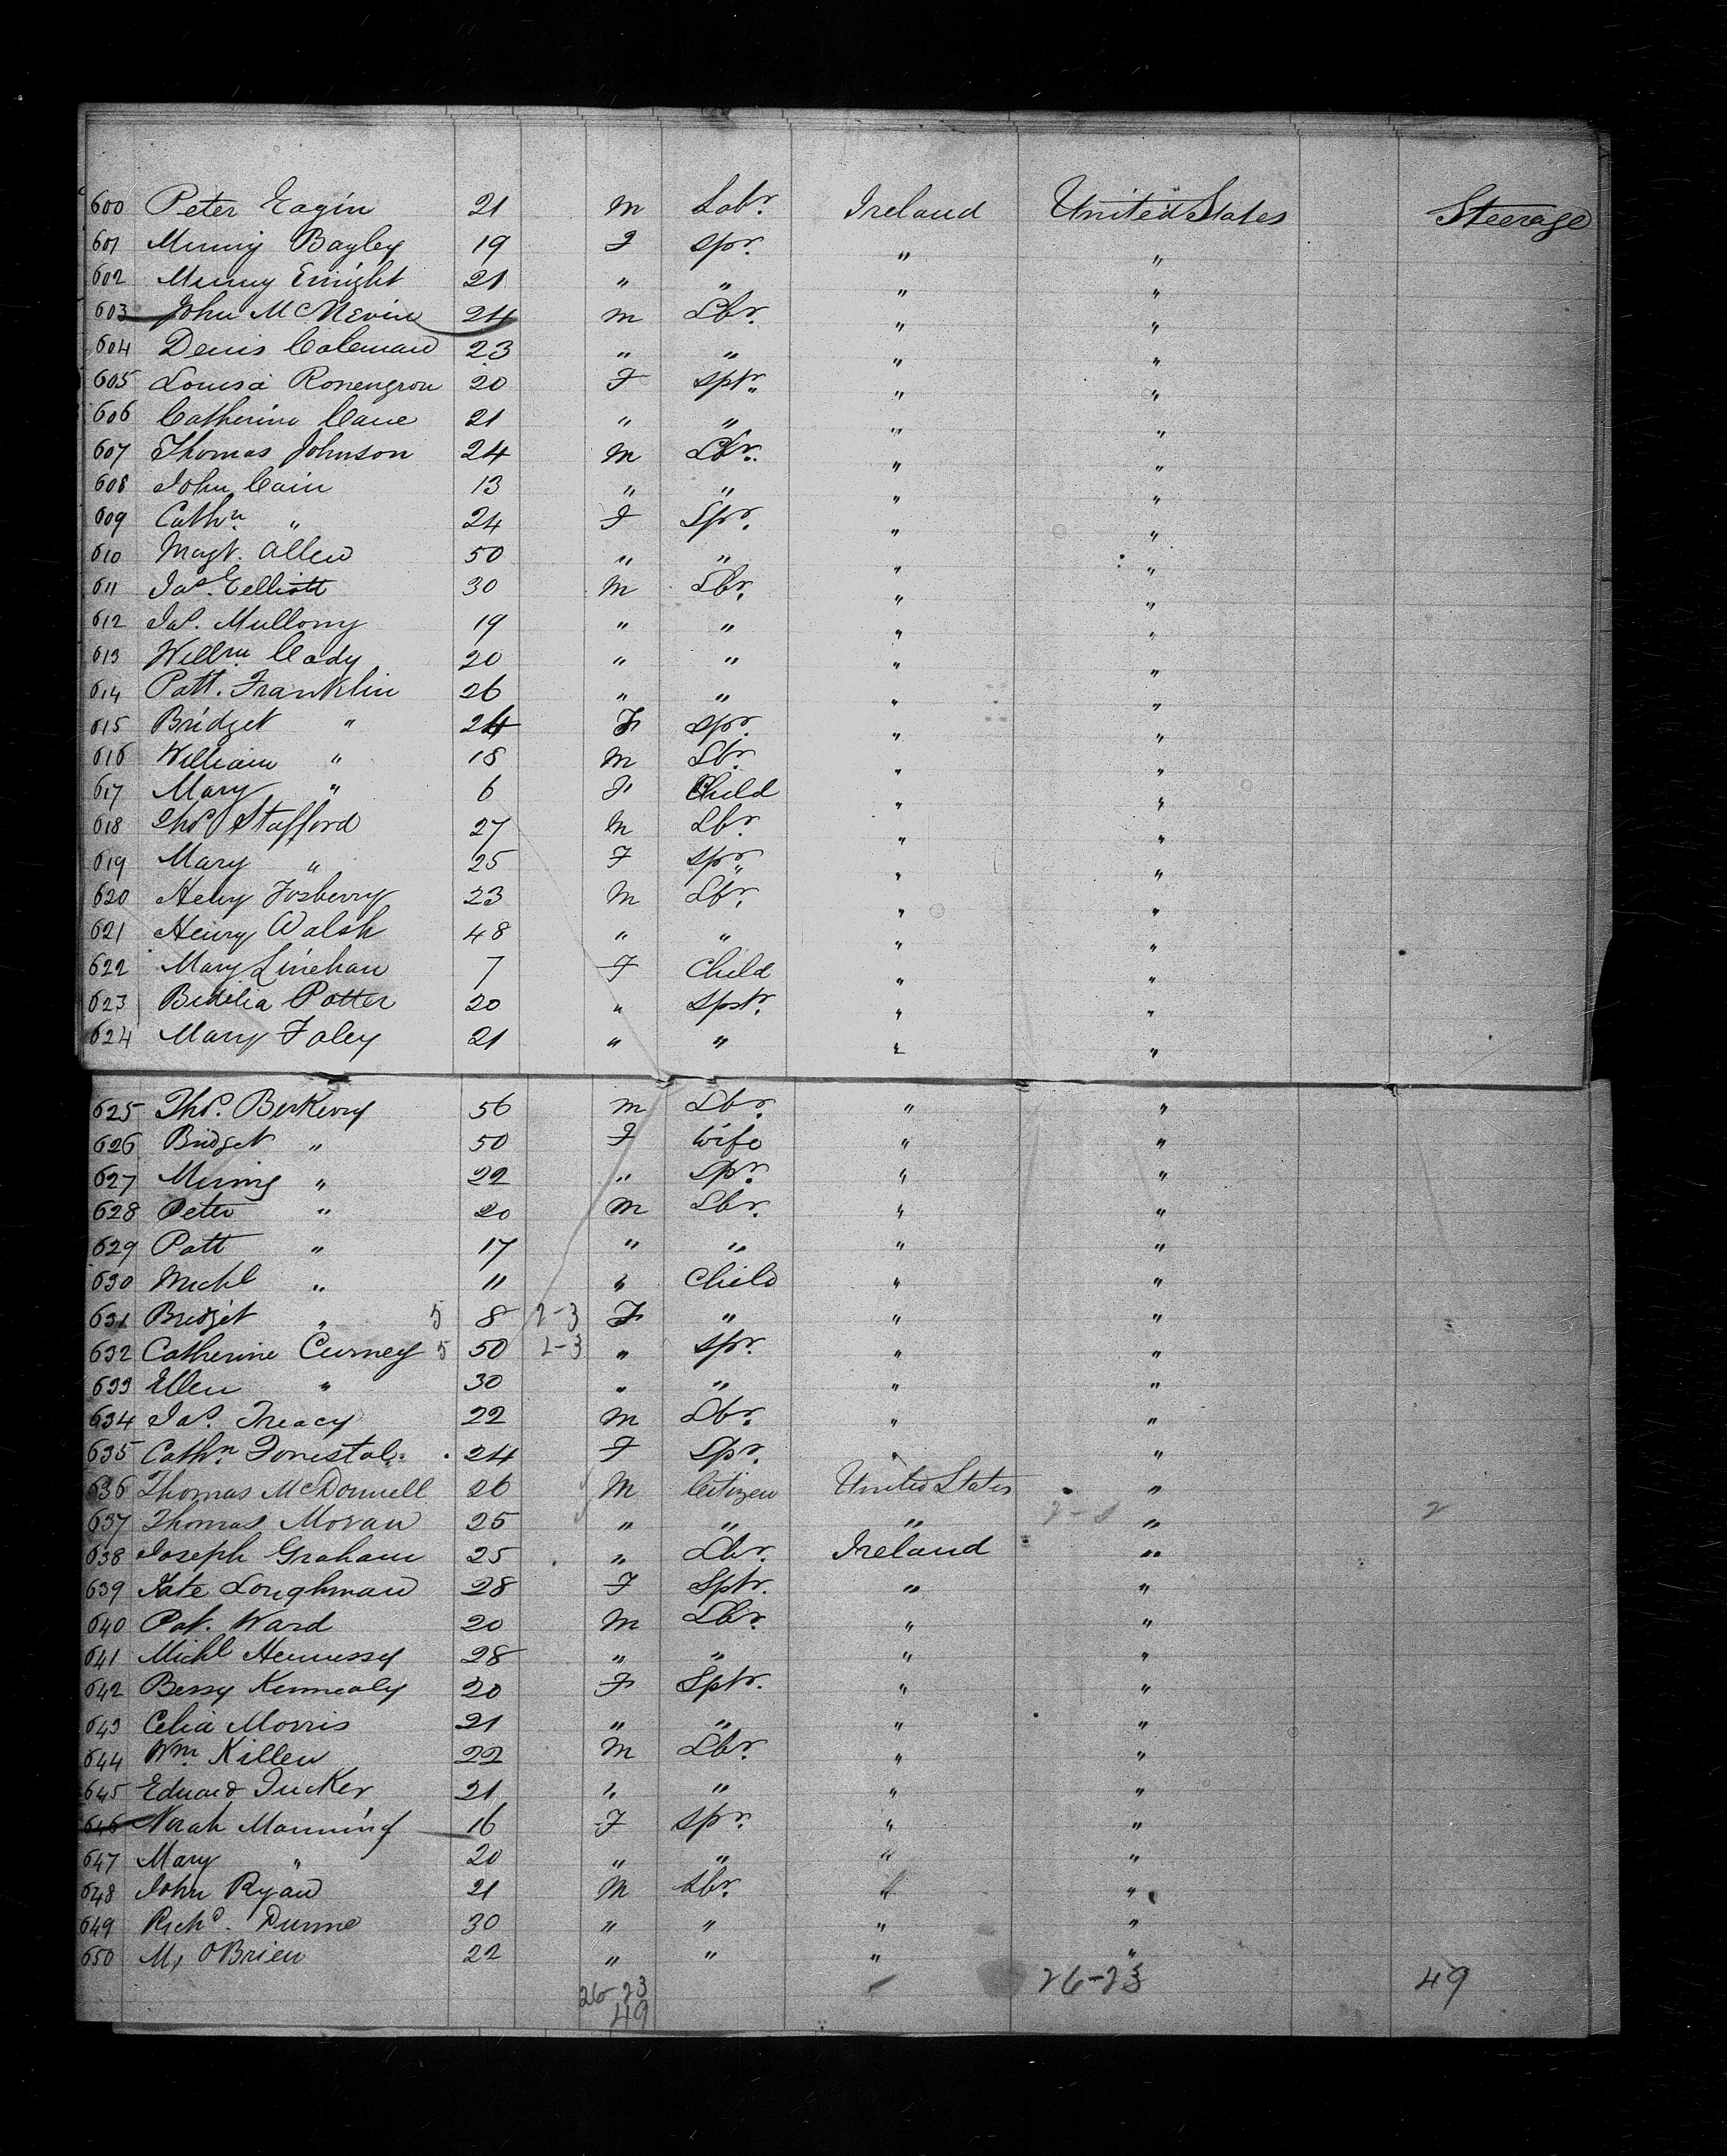 600 Peter Eagin 21 m Labr. Ireland United States Steerage
601 Minny Bagley 19 F Spr. " "
602 Minny Enright 21 " " " "
603 John McNevin 24 m Lbr. " "
604 Denis Coleman 23 " " " "
605 Louisa Ronengron 20 F Sptr. " "
606 Catherine Cane 21 " " " "
607 Thomas Johnson 24 m Lbr. " "
608 John Cain 13 " " " "
609 Cathn " 24 F Spr. " "
610 Magt. Allen 50 " " " "
611 Jas. Elliott 30 m Lbr. " "
612 Jas. Mullony 19 " " " "
613 Willm Cody 20 " " " "
614 Patt. Franklin 26 " " " "
615 Bridget " 24 F Spr. " "
616 William " 18 m Lbr. " "
617 Mary " 6 F Child " "
618 Thos Stafford 27 m Lbr. " "
619 Mary " 25 F Spr. " "
620 Henry Fosberry 23 m Lbr. " "
621 Henry Walsh 48 " " " "
622 Mary Linehan 7 F Child " "
623 Bidelia Potter 20 " Spstr. " "
624 Mary Foley 21 " " " "
625 Thos. Berkerry 56 m Lbr. " "
626 Bridget " 50 F Wife " "
627 Minny " 22 " Spr. " "
628 Peter " 20 m Lbr. " "
629 Patt " 17 " " " "
630 Michl " 11 " Child " "
631 Bridget " 5 8 2-3 F " " "
632 Catherine Curney 5 50 2-3 " Spr. " "
633 Ellen " 30 " " " "
634 Jas. Treacy 22 m Lbr. " "
635 Cathn. Forrestal. 24 F Spr. " "
636 Thomas McDonnell 26 M Citizen United States "
637 Thomas Moran 25 " " " " 2
638 Joseph Graham 25 " Lbr. Ireland "
639 Kate Loughman 28 F Sptr. " "
640 Pat. Ward 20 m Lbr. " "
641 Michl Hennessy 28 " " " "
642 Bessy Kennealy 20 F Sptr. " "
643 Celia Morris 21 " " " "
644 Wm Killen 22 m Lbr. " "
645 Edward Tucker 21 " " " "
646 Norah Manning 16 F Spr. " "
647 Mary " 20 " " " "
648 John Ryan 21 M Lbr. " "
649 Richd. Dunne 30 " " " "
650 M, OBrien 22 " " " "
26-23 26-23 49
49